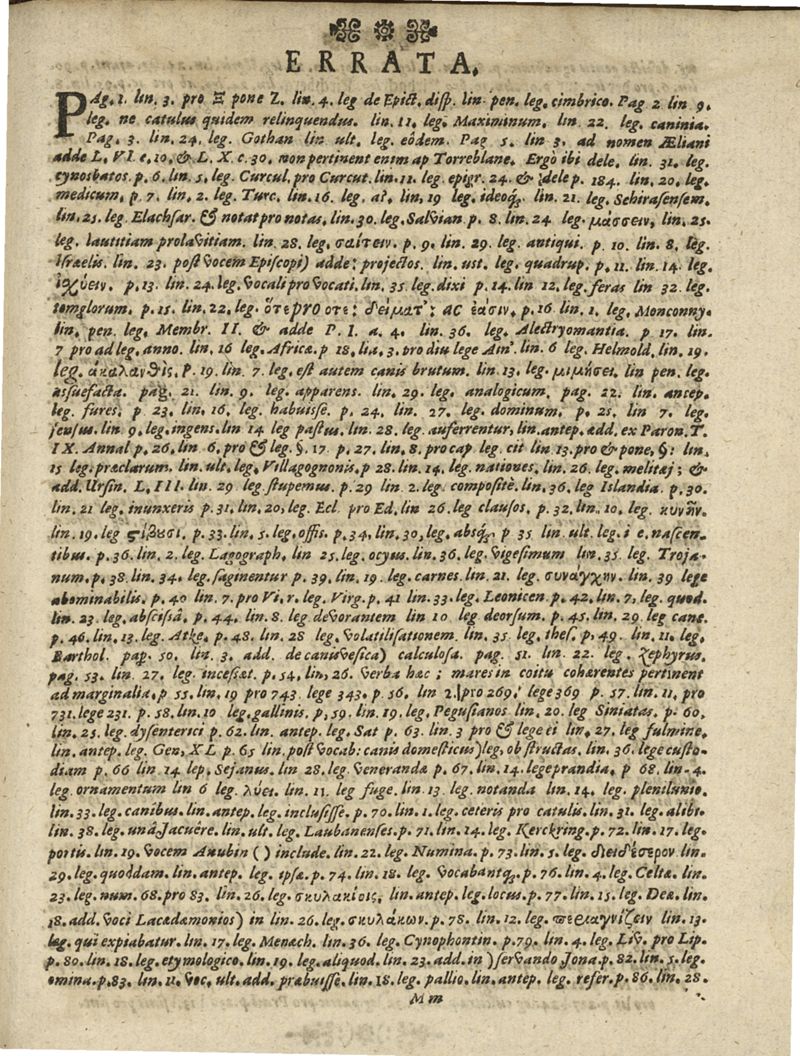 ERRATA.
PAg. 1. lin. 3. pro Ξ pone Z. lin. 4. leg de Epict. disp. lin. pen. leg. cimbrico. Pag 2 lin 9.
leg. ne catulus quidem relinquendus. lin. 11. leg. Maximinum. lin. 22. leg. caninia.
Pag. 3. lin. 24. leg. Gothan lin ult. leg. eôdem. Pag 5. lin 3. ad nomen Æliani
adde L. VI. c, 10, & L. X. c. 30. non pertinent enim ap Torreblanc. Ergò ibi dele. lin. 31. leg.
cynosbatos. p. 6. lin. 5. leg. Curcul. pro Curcut. lin. 11. leg. epigr. 24. & dele p. 184. lin. 20. leg.
medicum, p. 7. lin. 2. leg. Turc. lin. 16. leg. at. lin, 19 leg. ideoq́. lin. 21. leg. Schirasensem.
lin. 25. leg. Elachsar. & notat pro notas. lin. 30. leg. Salvian p. 8. lin. 24 leg. μάσσειν, lin. 25.
leg. lautitiam pro lavitiam. lin. 28. leg. σαίτειν. p. 9. lin. 29. leg. antiqui. p. 10. lin. 8. leg.
Israelis. lin. 23. post vocem Episcopi) adde: projectos. lin. ust. leg. quadrup. p. 11. lin. 14. leg.
ἰχύειν. p. 13. lin. 24. leg. vocali pro vocati. lin. 35 leg. dixi p. 14. lin 12. leg. feras lin 32. leg.
templorum. p. 15. lin. 22. leg. ὅτε pro οτε: δείματ': ac ἐάσιν. p. 16 lin. 1. leg. Monconny.
lin. pen. leg. Membr. II. & adde P. I. a. 4. lin. 36. leg. Alectryomantia. p 17. lin.
7 pro ad leg. anno. lin. 16 leg. Africæ. p 18, lin. 3. pro diu lege Ain'. lin. 6 leg. Helmold. lin. 19.
leg. ἀκαλανθὶς. p. 19. lin. 7. leg. est autem canis brutum. lin. 13. leg. μιμήσει. lin pen. leg.
assuefacta. pag. 21. lin. 9. leg. apparens. lin. 29. leg. analogicum. pag. 22. lin. antep.
leg. fures. p 23. lin. 16. leg. habuisse. p. 24. lin. 27. leg. dominum, p. 25. lin 7. leg.
sensus. lin 9. leg. ingens. lin 14 leg pastus. lin. 28. leg. auferrentur, lin. antep. add. ex Paron. T.
IX. Annal p. 26. lin 6. pro & leg. §. 17 p. 27. lin. 8. pro cap leg. cit lin. 13. pro & pone, §: lin.
15 leg. præclarum. lin. ult. leg. Villagognonis. p 28. lin. 14. leg. nationes. lin. 26. leg. melitæi; &
add. Ursin. L. III. lin. 29 leg. stupemus. p. 29 lin 2. leg: compositè. lin. 36. leg Islandia. p. 30.
lin. 21 leg. inunxeris p. 31. lin. 20, leg. Ecl. pro Ed. lin 26. leg clausos. p. 32. lin. 10. leg. κυνῆν.
lin. 19. leg ϛίβουσι. p. 33. lin. 5. leg. offis. p. 34. lin. 30, leg. absq́. p 35 lin ult. leg. i e. nascen-
tibus. p. 36. lin. 2. leg. Lagograph. lin 25. leg. ocyus. lin. 36. leg. vigesimum lin. 35. leg. Troja-
num. p. 38. lin. 34. leg. saginentur p. 39. lin. 19. leg. carnes. lin. 21. leg. συνάγχην. lin. 39 lege
abominabilis. p. 40 lin. 7. pro Vi. r. leg. Virg. p. 41 lin. 33. leg. Leonicen. p. 42. lin. 7. leg. quod.
lin. 23. leg. abscissâ. p. 44. lin. 8. leg devorantem lin 10 leg deorsum. p. 45. lin. 29. leg cane.
p. 46. lin. 13. leg. Atke. p. 48. lin. 28 leg. volatilisationem. lin. 35. leg. thes. p. 49. lin. 11. leg.
Barthol. pap. 50. lin. 3. add. de cani vesica) calculosa. pag. 51. lin. 22. leg. zephyrus.
pag. 53. lin. 27. leg. incessæt. p. 54. lin. 26. verba hac; mares in coitu cohærentes pertinent
ad marginalia. p 55. lin. 19 pro 743. lege 343. p. 56. lin 2. pro 269. lege 369 p. 57. lin. 11. pro
731. lege 231. p. 58. lin. 10 leg. gallinis. p, 59. lin. 19. leg. Pegusianos. lin. 20. leg Siniatas. p. 60,
lin. 25. leg. dysenterici p. 62. lin. antep. leg. Sat p. 63. lin. 3 pro & lege ei lin. 27. leg fulmine.
lin. antep. leg. Gen, XL p. 65 lin. post vocab: canis domesticus) leg. ob structas. lin. 36. lege custo-
diam p. 66 lin 14 lep. Sejanus. lin 28. leg. veneranda p. 67. lin. 14. lege prandia. p 68. lin. 4.
leg. ornamentum lin 6 leg. λύει. lin. 11. leg fuge. lin. 13. leg. notanda lin. 14. leg. plenilunio.
lin. 33. leg. canibus. lin. antep. leg. inclusisse. p. 70. lin. 1. leg. ceteris pro catulis. lin. 31. leg. alibi.
lin. 38. leg. unà Jacuère. lin. ult. leg. Laubanenses. p. 71. lin. 14. leg. Kerckring. p. 72. lin. 17. leg.
portis. lin. 19. vocem Anubin () include. lin. 22. leg. Numina. p. 73. lin. 5. leg. διειδέσερον lin.
29. leg. quoddam. lin. antep. leg. ipsæ. p. 74. lin. 18. leg. vocabantq́. p. 76. lin. 4. leg. Celtæ. lin.
23. leg. num. 68. pro 83. lin. 26. leg. σκυλακίοις. lin. antep. leg. locus. p. 77. lin. 15. leg. Deæ. lin.
18. add. voci Lacædæmonios) in lin. 26. leg. σκυλάκων. p. 78. lin. 12. leg. περιαγνίζειν lin. 13.
leg. qui expiabatur. lin. 17. leg. Menæch. lin. 36. leg. Cynophontin. p. 79. lin. 4. leg. Liv. pro Lip.
p. 80. lin. 18. leg. etymologico. lin. 19. leg. aliquod. lin. 23. add. in) servando Jona. p. 82. lin. 5. leg.
omina. p. 83. lin. 11. voc. ult. add. præbuisse. lin. 18. leg. pallio. lin. antep. leg. refer. p. 86. lin. 28.
M m